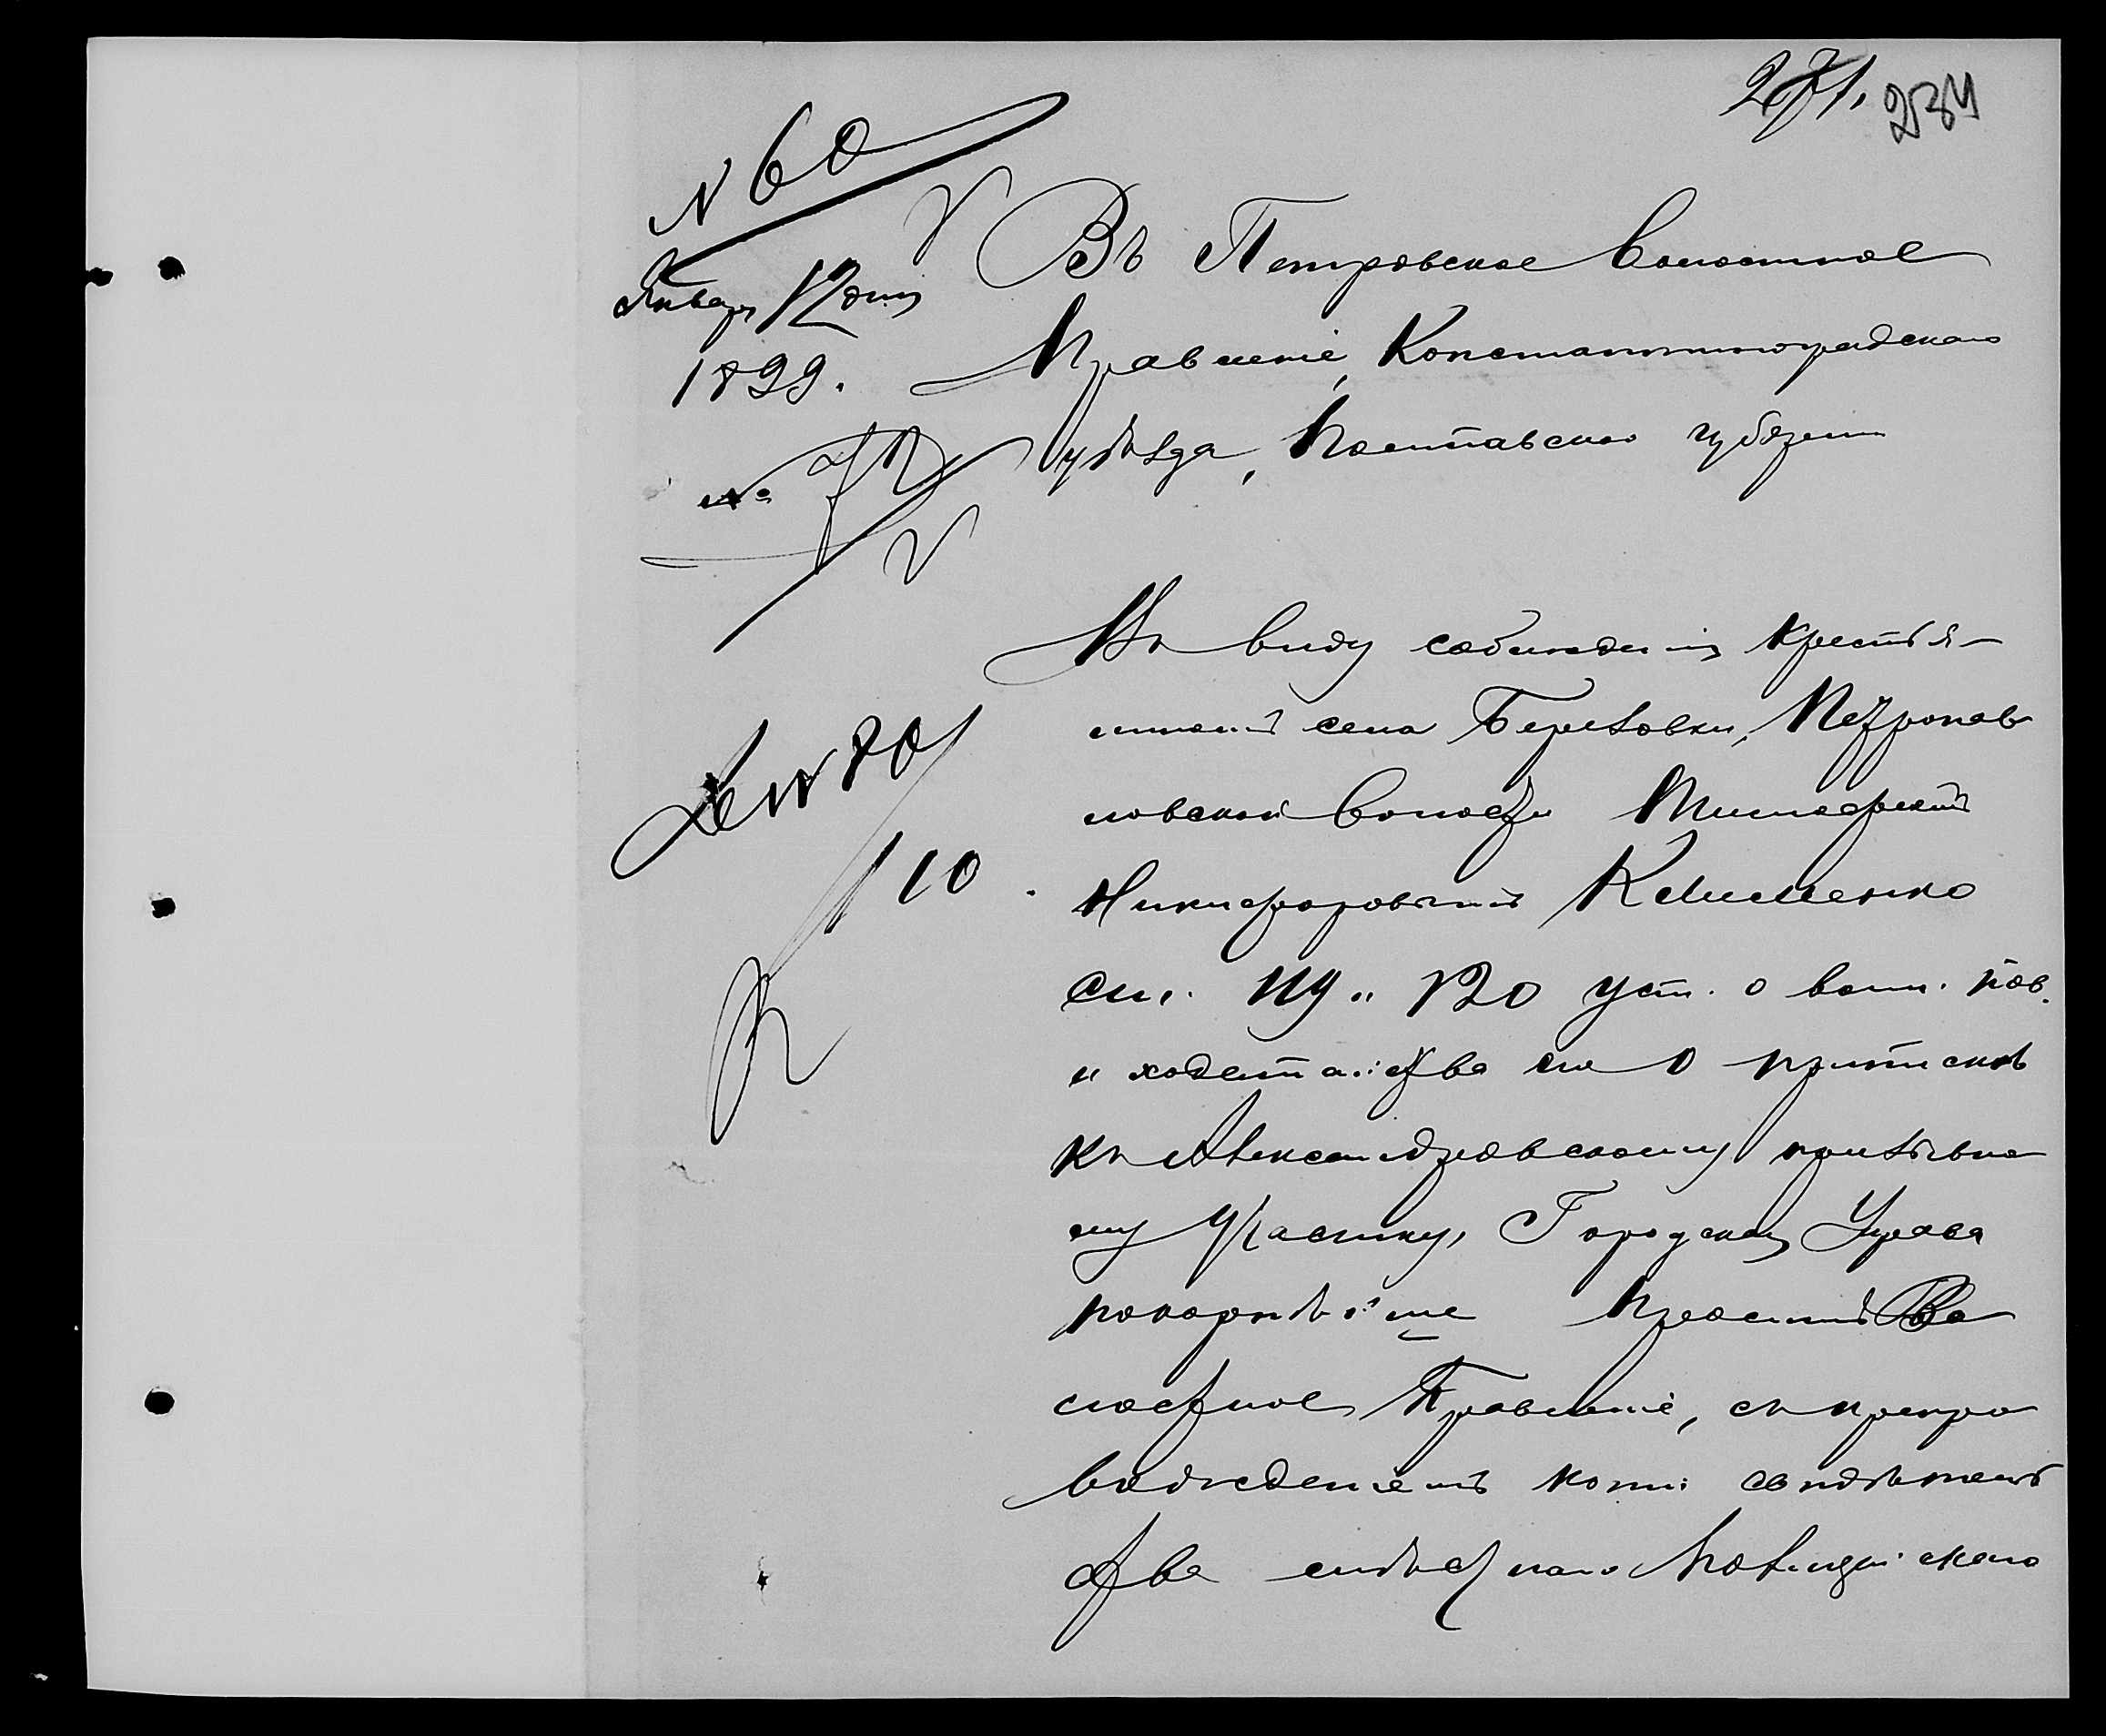 271. 234
N 60
Января 12 дня
1899.
Въ Петровское Волостное
Правленіе, Константиноградскаго
уѣзда, Полтавской губерніи
Въ виду соблюденія крестья-
ниномъ села Березовки, Петропав
ловской волости Тимофеемъ
Никифоровымъ Клименко
ст. 119 и 120 Уст. о воин. пов.
и ходатайства его о припискѣ
къ Александровскому призывно
му участку, Городская Управа
покорнѣйше проситъ Во
лостное Правленіе, съ препро
вожденіемъ копіи свидѣтель
ства мѣстнаго Полицейскаго
N 80
10